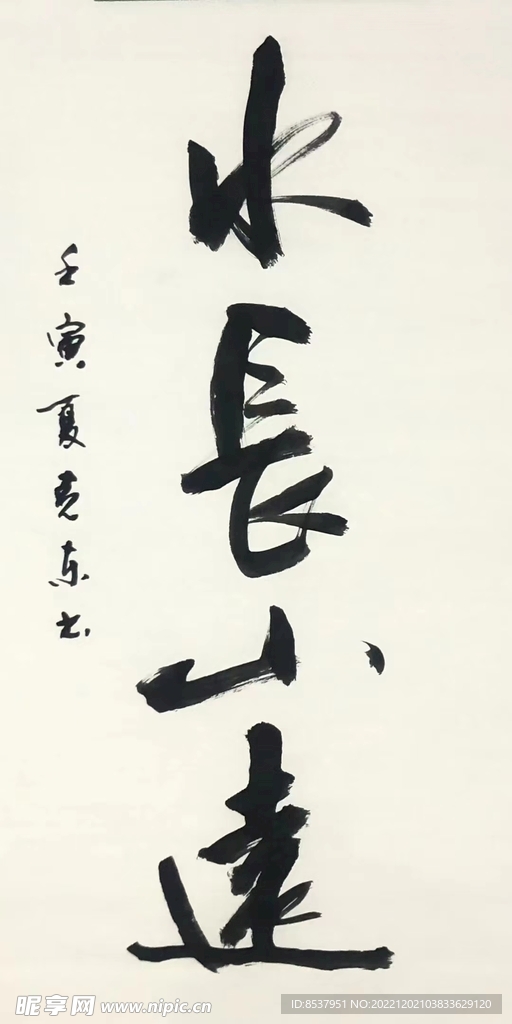 水長山遠
壬寅夏克东书
昵享网 www.nipic.cn
ID:8537951 NO:20221202103833629120